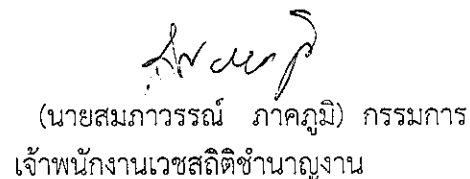 (นายสมภาวรรณ์ ภาคภูมิ) กรรมการ
เจ้าพนักงานเวชสถิติชำนาญงาน